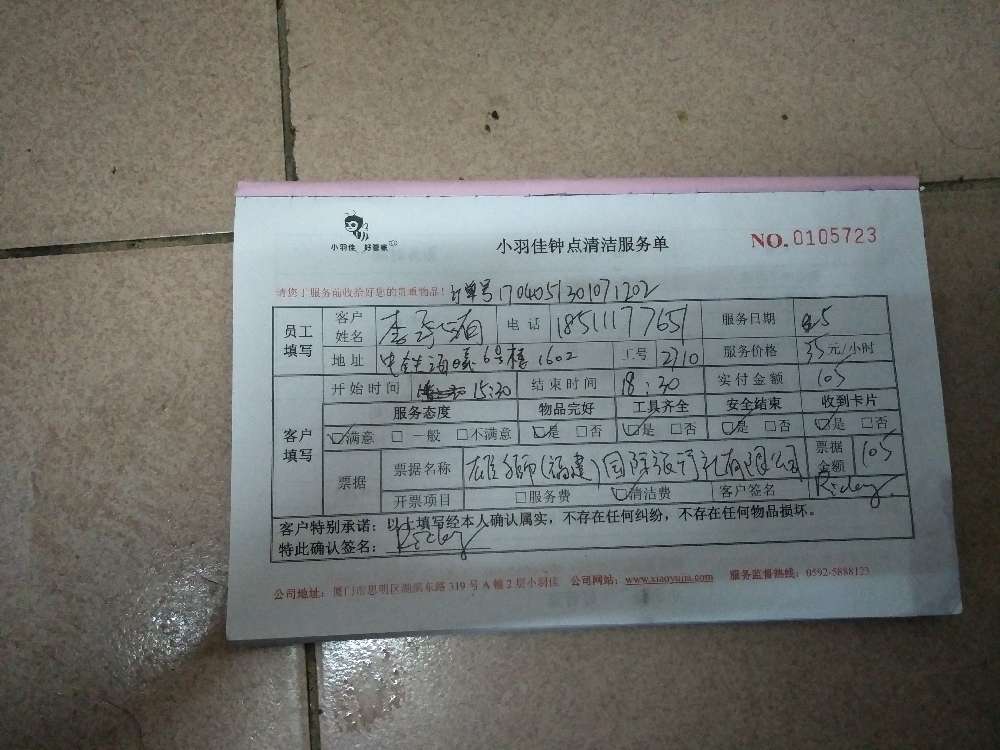 小羽佳 好管家
小羽佳钟点清洁服务单
NO. 0105723
请您于服务前收拾好您的贵重物品! 订单号1704051301071202
员工填写 客户姓名 李 电话 18511177651 服务日期
地址 6号楼1602 工号 2710 服务价格 35元/小时
客户填写 开始时间 15:30 结束时间 18:30 实付金额 105
服务态度 物品完好 工具齐全 安全结束 收到卡片
☑满意 □一般 □不满意 ☑是 □否 ☑是 □否 ☑是 □否 ☑是 □否
票据 票据名称 雄狮(福建)国际旅行社有限公司 票据金额 105
开票项目 □服务费 ☑清洁费 客户签名
客户特别承诺：以上填写经本人确认属实，不存在任何纠纷，不存在任何物品损坏。
特此确认签名：
公司地址：厦门市思明区湖滨东路319号A幢2层小羽佳 公司网站：www.xiaoyujia.com 服务监督热线：0592-5888123